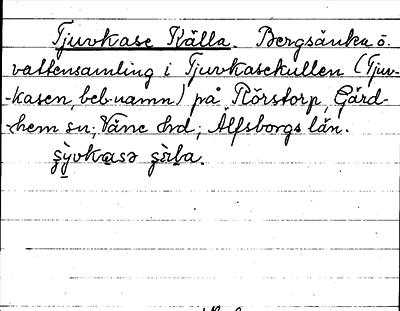 Tjuvkase Källa. Bergsänka o.
vattensamling i Tjuvkasekullen (Tjuv-
-kasen, beb.namn) på Rörstorp, Gärd-
-hem sn; Väne hrd; Älfsborgs län.